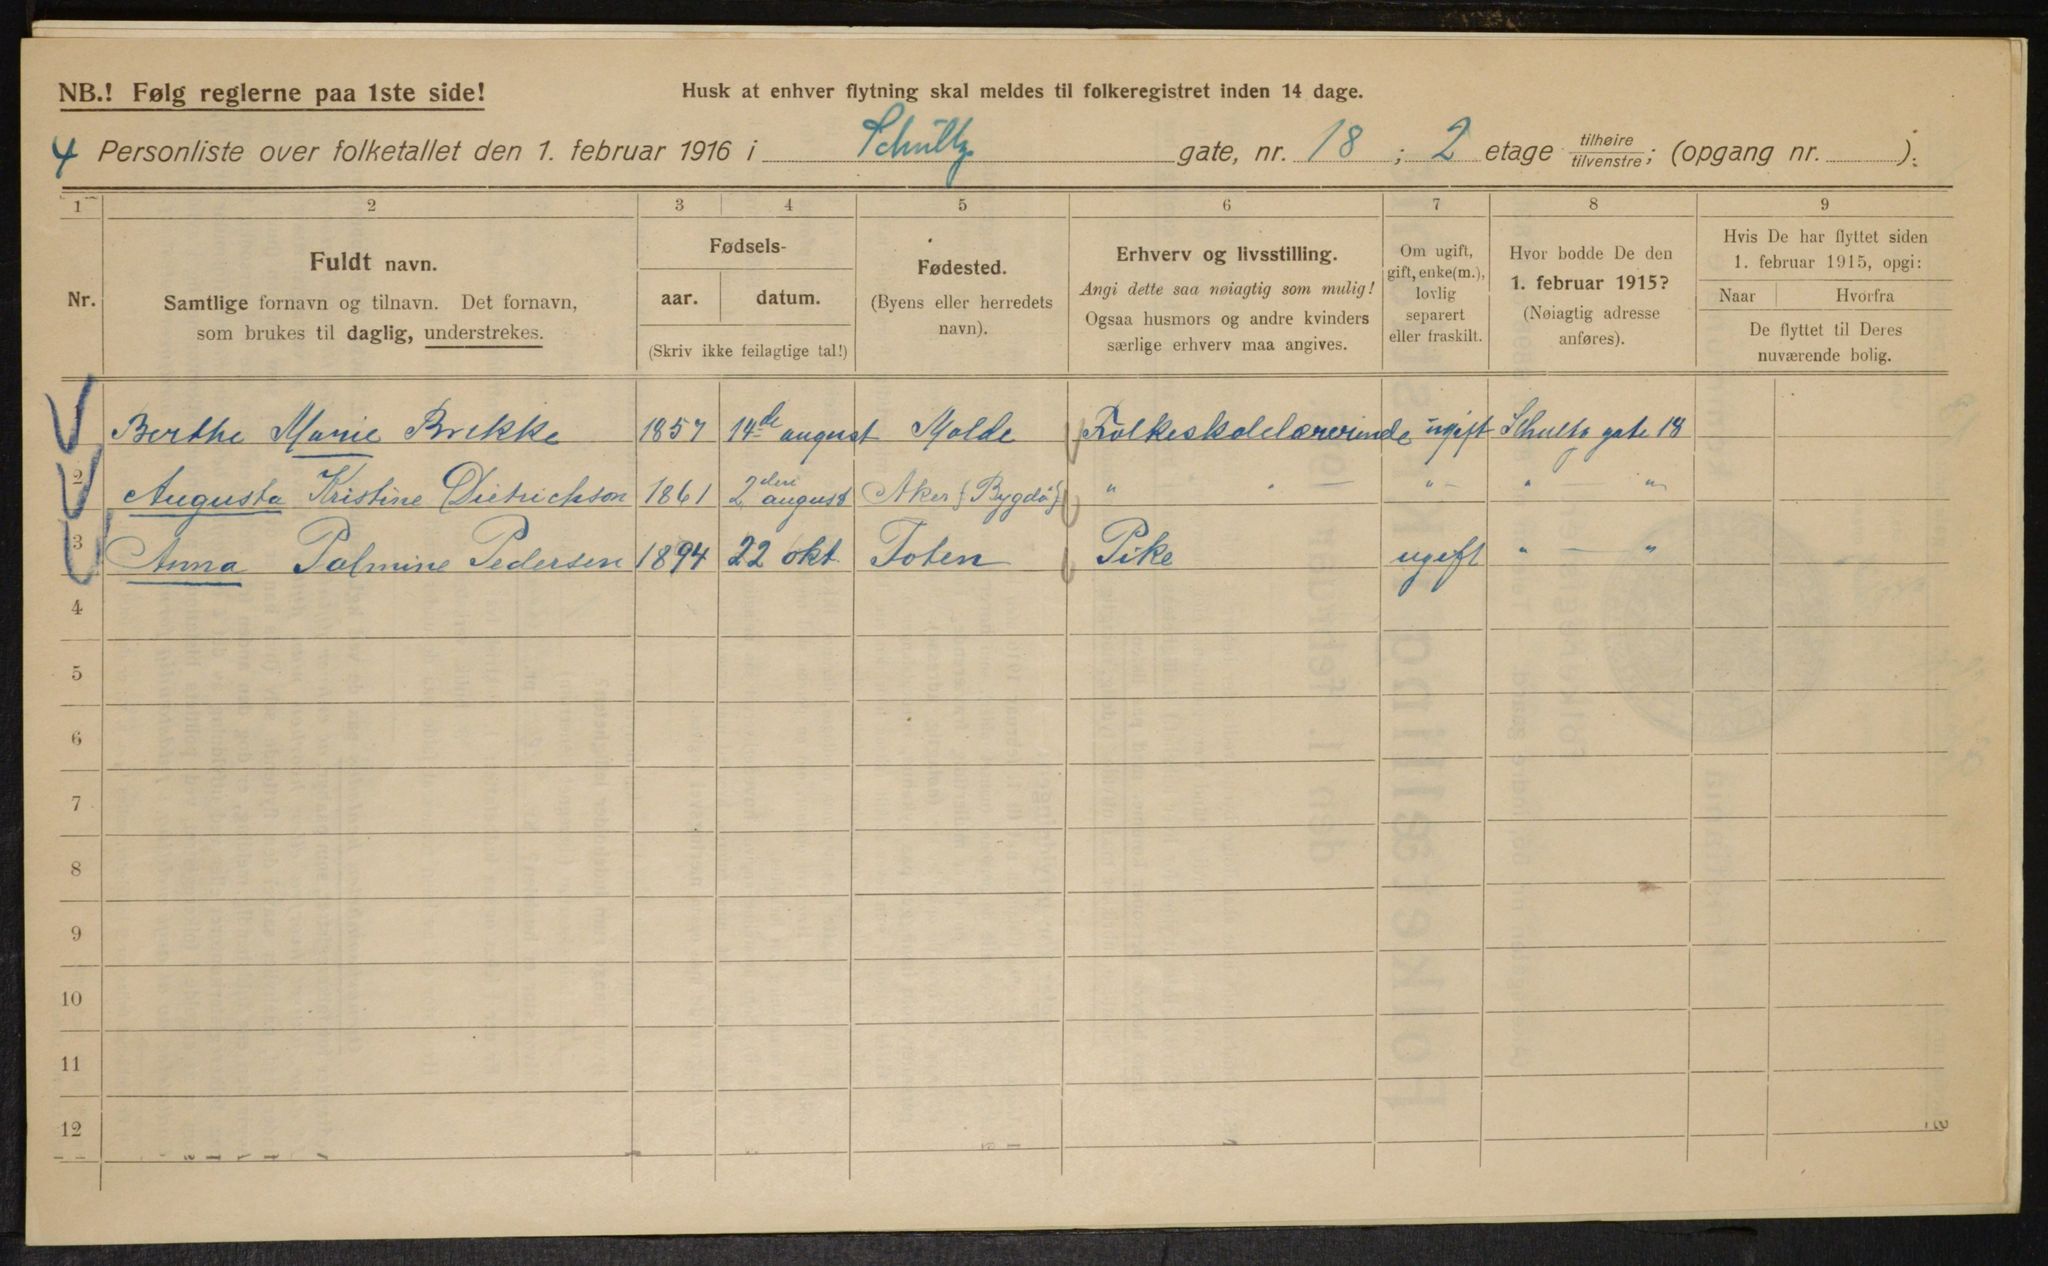 NB.! Følg reglerne paa 1ste side!
Husk at enhver flytning skal meldes til folkeregistret inden 14 dage.
4 Personliste over folketallet den 1. februar 1916 i Schultz gate, nr. 18 ; 2 etage tilhøire / tilvenstre ; (opgang nr. ).
1 2 3 4 5 6 7 8 9
Nr.
Fuldt navn.
Samtlige fornavn og tilnavn. Det fornavn,
som brukes til daglig, understrekes.
Fødsels-
aar. datum.
(Skriv ikke feilagtige tal!)
Fødested.
(Byens eller herredets
navn).
Erhverv og livsstilling.
Angi dette saa nøiagtig som mulig!
Ogsaa husmors og andre kvinders
særlige erhverv maa angives.
Om ugift,
gift, enke(m.),
lovlig
separert
eller fraskilt.
Hvor bodde De den
1. februar 1915?
(Nøiagtig adresse
anføres).
Hvis De har flyttet siden
1. februar 1915, opgi:
Naar Hvorfra
De flyttet til Deres
nuværende bolig.
Berthe Marie Brekke 1857 14de august Molde Folkeskolelærerinde ugift Schultz gate 18
2 Augusta Kristine Dietrichson 1861 2den august Aker (Bygdø) " " — "— " — "
3 Anna Palmine Pedersen 1894 22 okt. Toten Pike ugift " — "
4
5
6
7
8
9
10
11
12